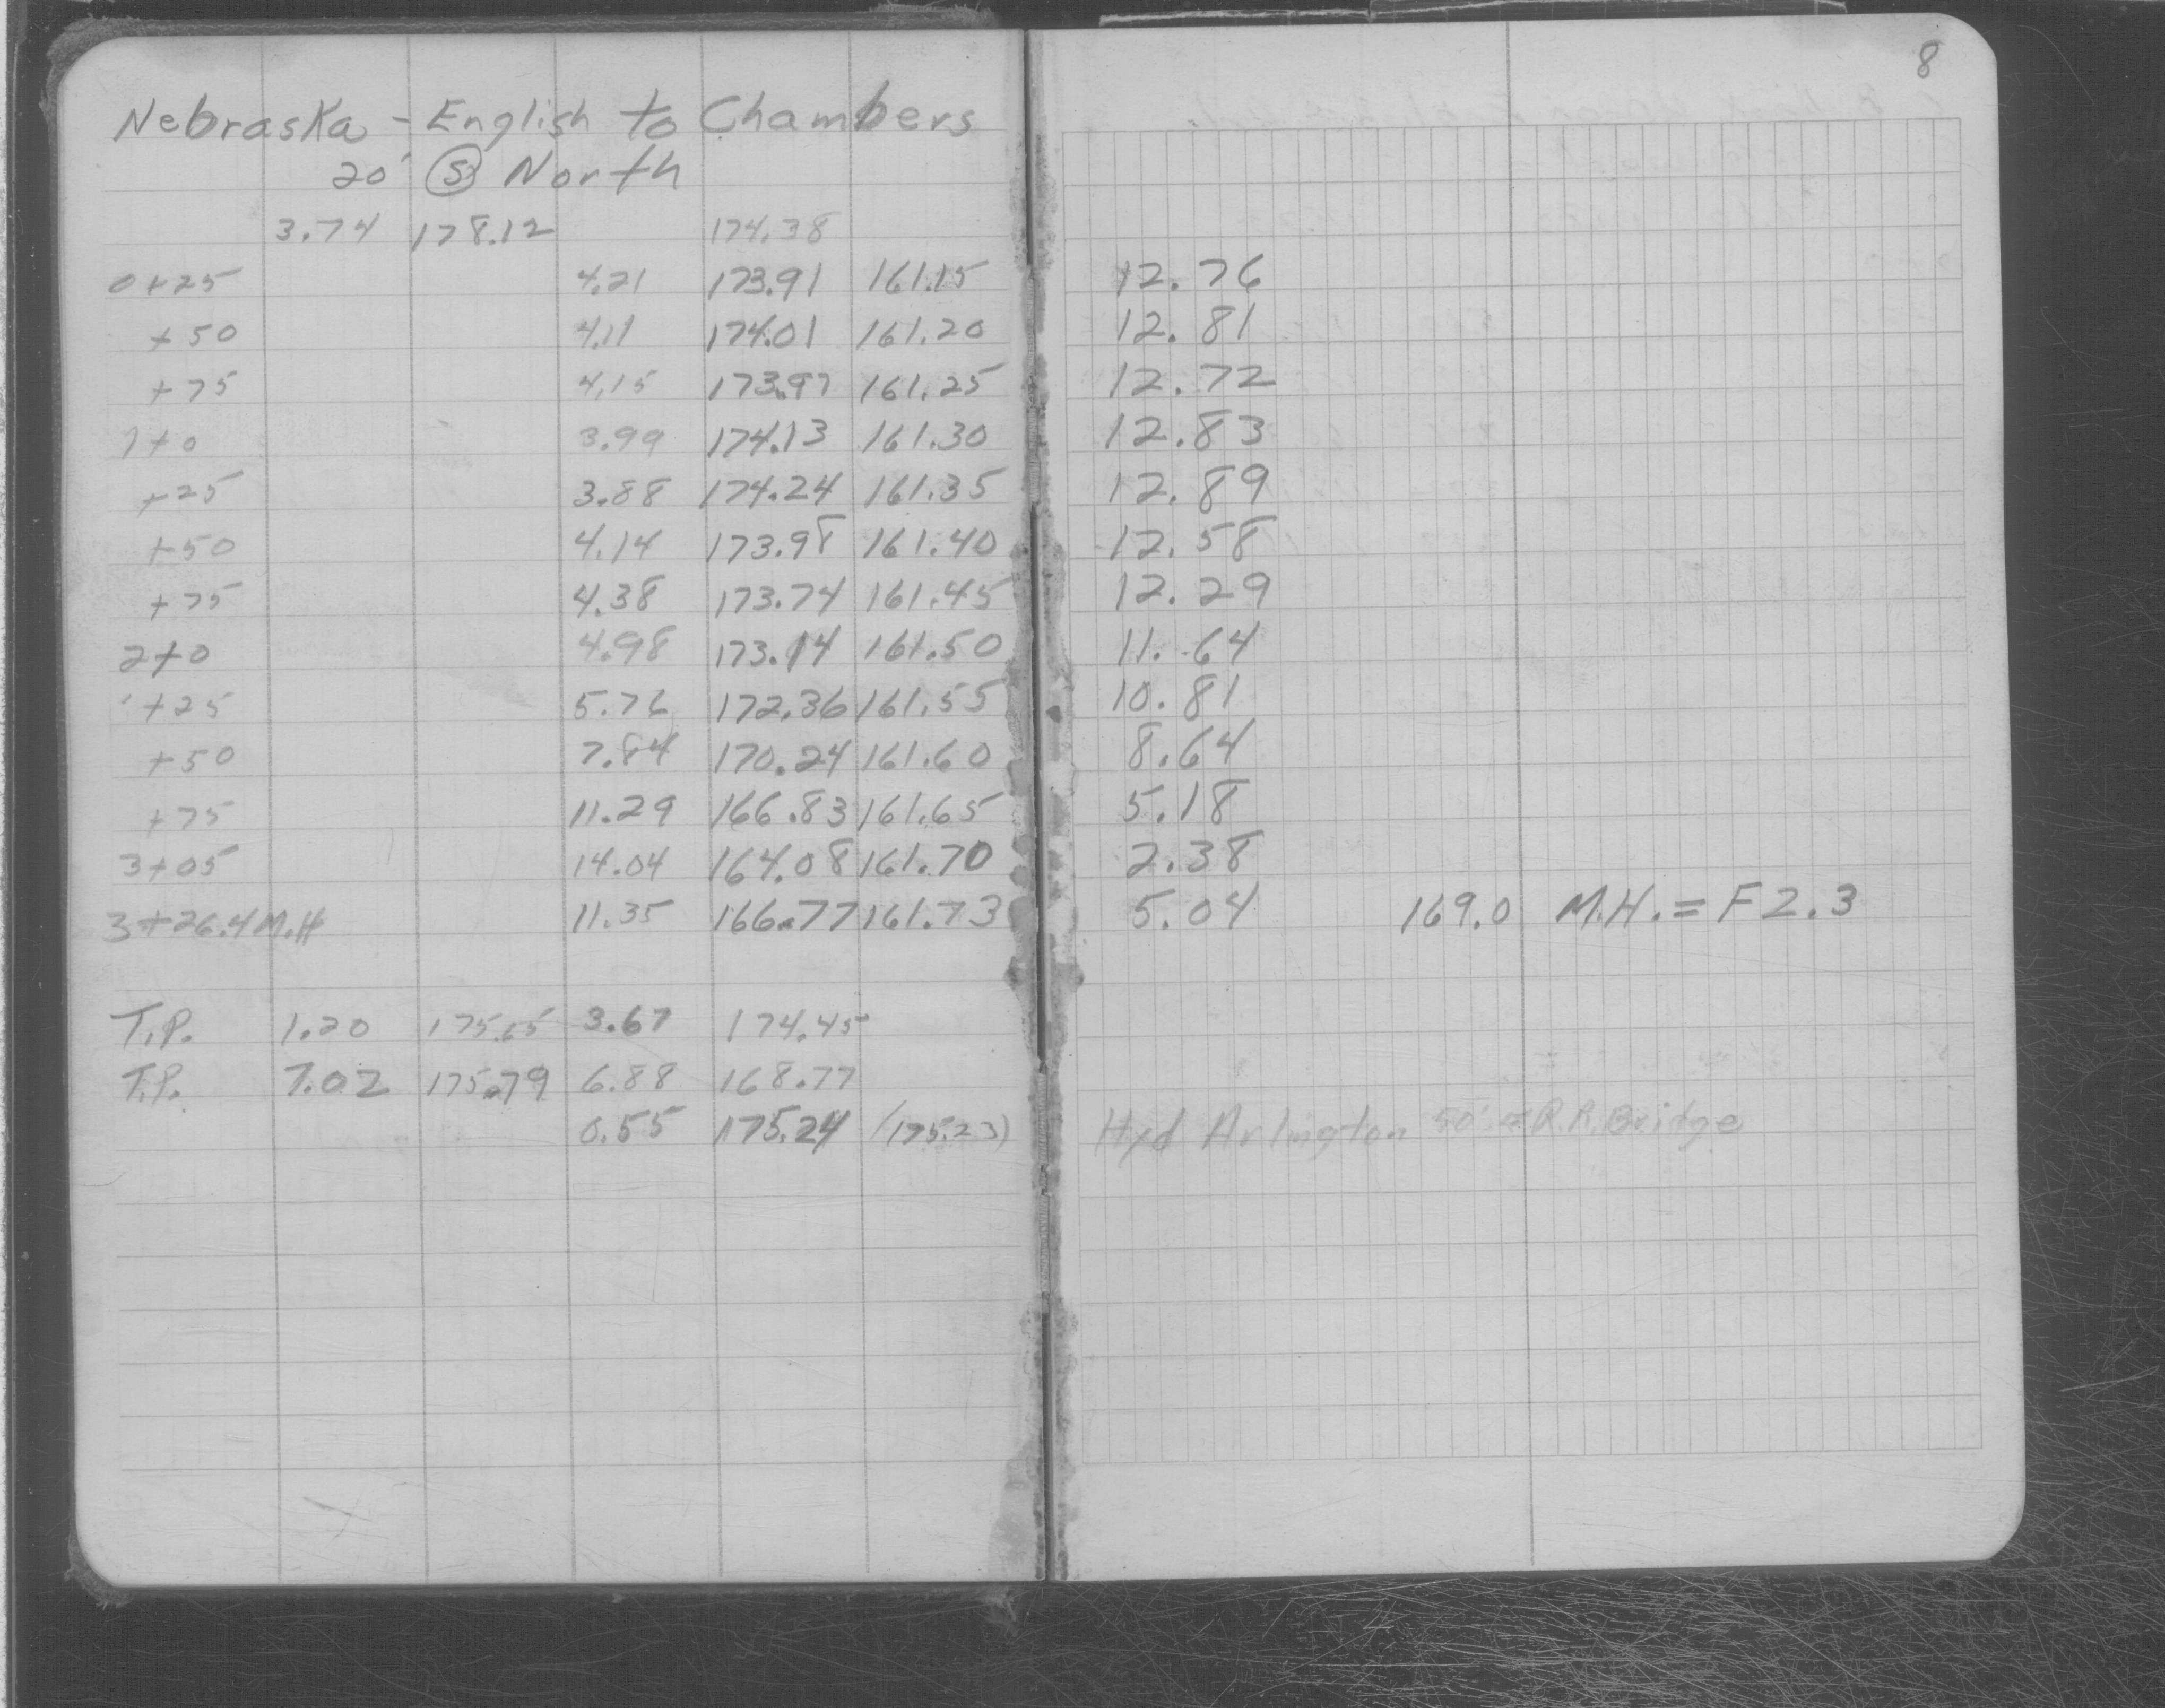 8
Nebraska - English to Chambers
20' Ⓢ North
3.74 178.12 174.38
0+25 4.21 173.91 161.15 12.76
+50 4.11 174.01 161.20 12.81
+75 4.15 173.97 161.25 12.72
1+0 3.99 174.13 161.30 12.83
+25 3.88 174.24 161.35 12.89
+50 4.14 173.98 161.40 12.58
+75 4.38 173.74 161.45 12.29
2+0 4.98 173.14 161.50 11.64
+25 5.76 172.36 161.55 10.81
+50 7.84 170.24 161.60 8.64
+75 11.29 166.83 161.65 5.18
3+05 14.04 164.08 161.70 2.38
3+26.4 M.H 11.35 166.77 161.73 5.04 169.0 M.H. = F 2.3
T.P. 1.20 175.65 3.67 174.45
T.P. 7.02 175.79 6.88 168.77
0.55 175.24 (175.23) Hyd Arlington 50' R.R. Bridge